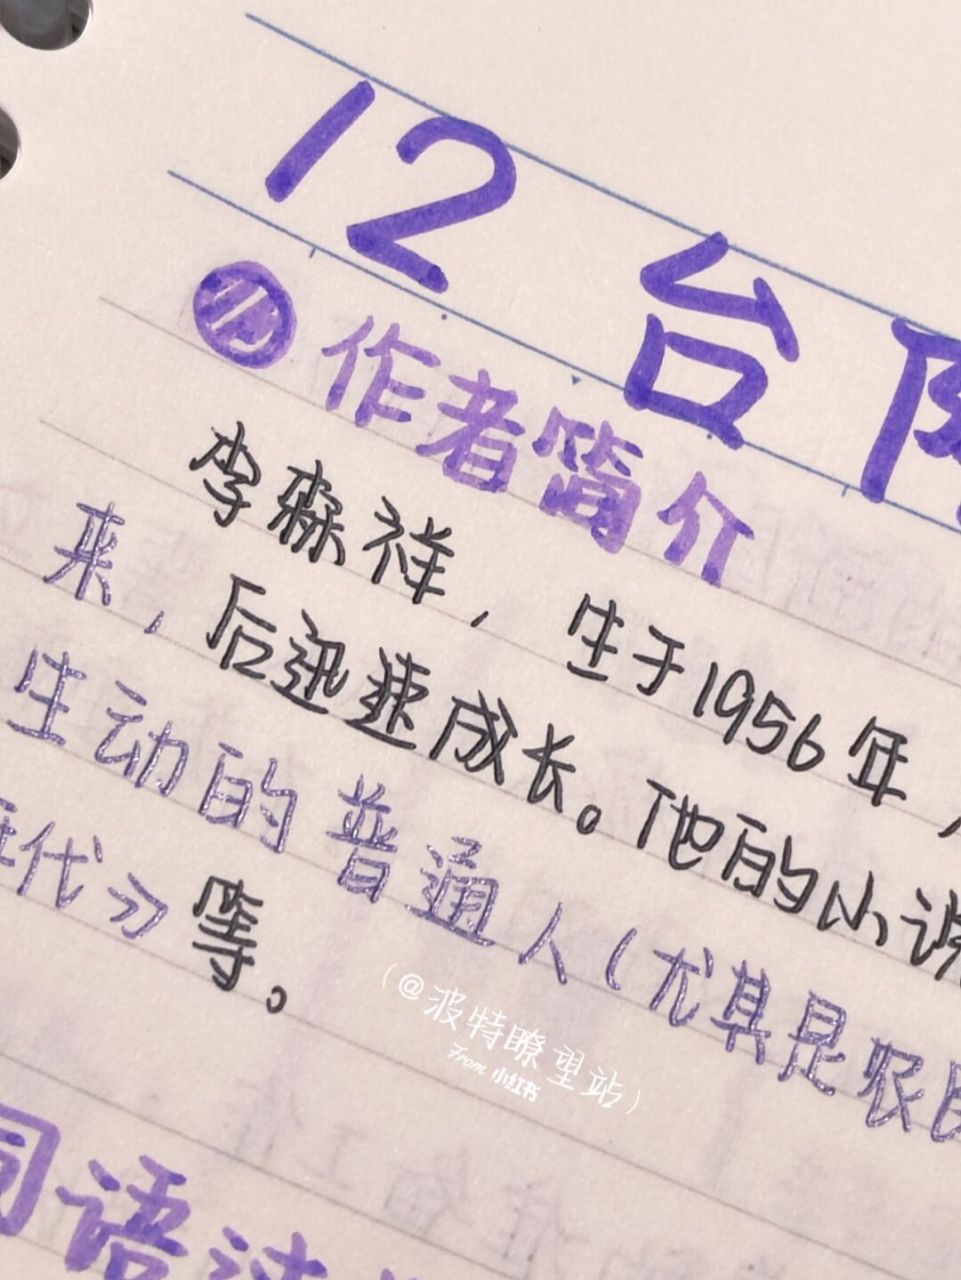 12 台阶
作者简介
李森祥，生于1956年，
来，后迅速成长。他的小说
生动的普通人（尤其是农民
代》等。
（@波特瞭望站）
From 小红书
词语